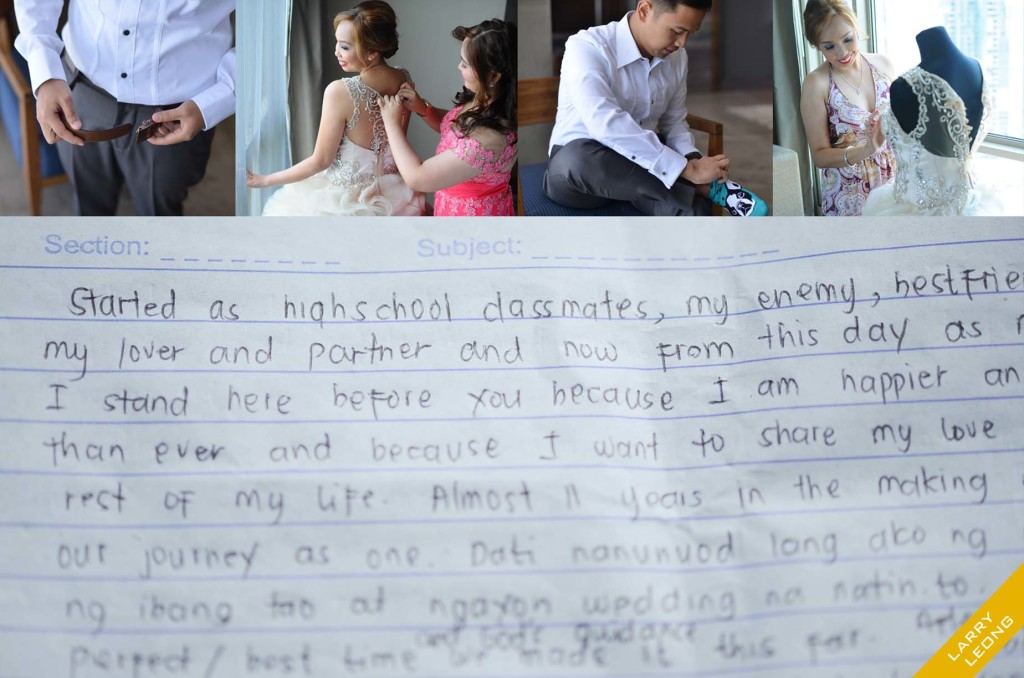 Section: Subject:
Started as highschool classmates, my enemy, bestfrie
my lover and partner and now from this day as
I stand here before you because I am happier an
than ever and because I want to share my love
rest of my life. Almost 11 years in the making
our journey as one. Dati nanunuod lang ako ng
ng ibang tao at ngayon wedding na natin to.
and God's guidance
perfect/best time we made it this far.
LARRY
LEONG